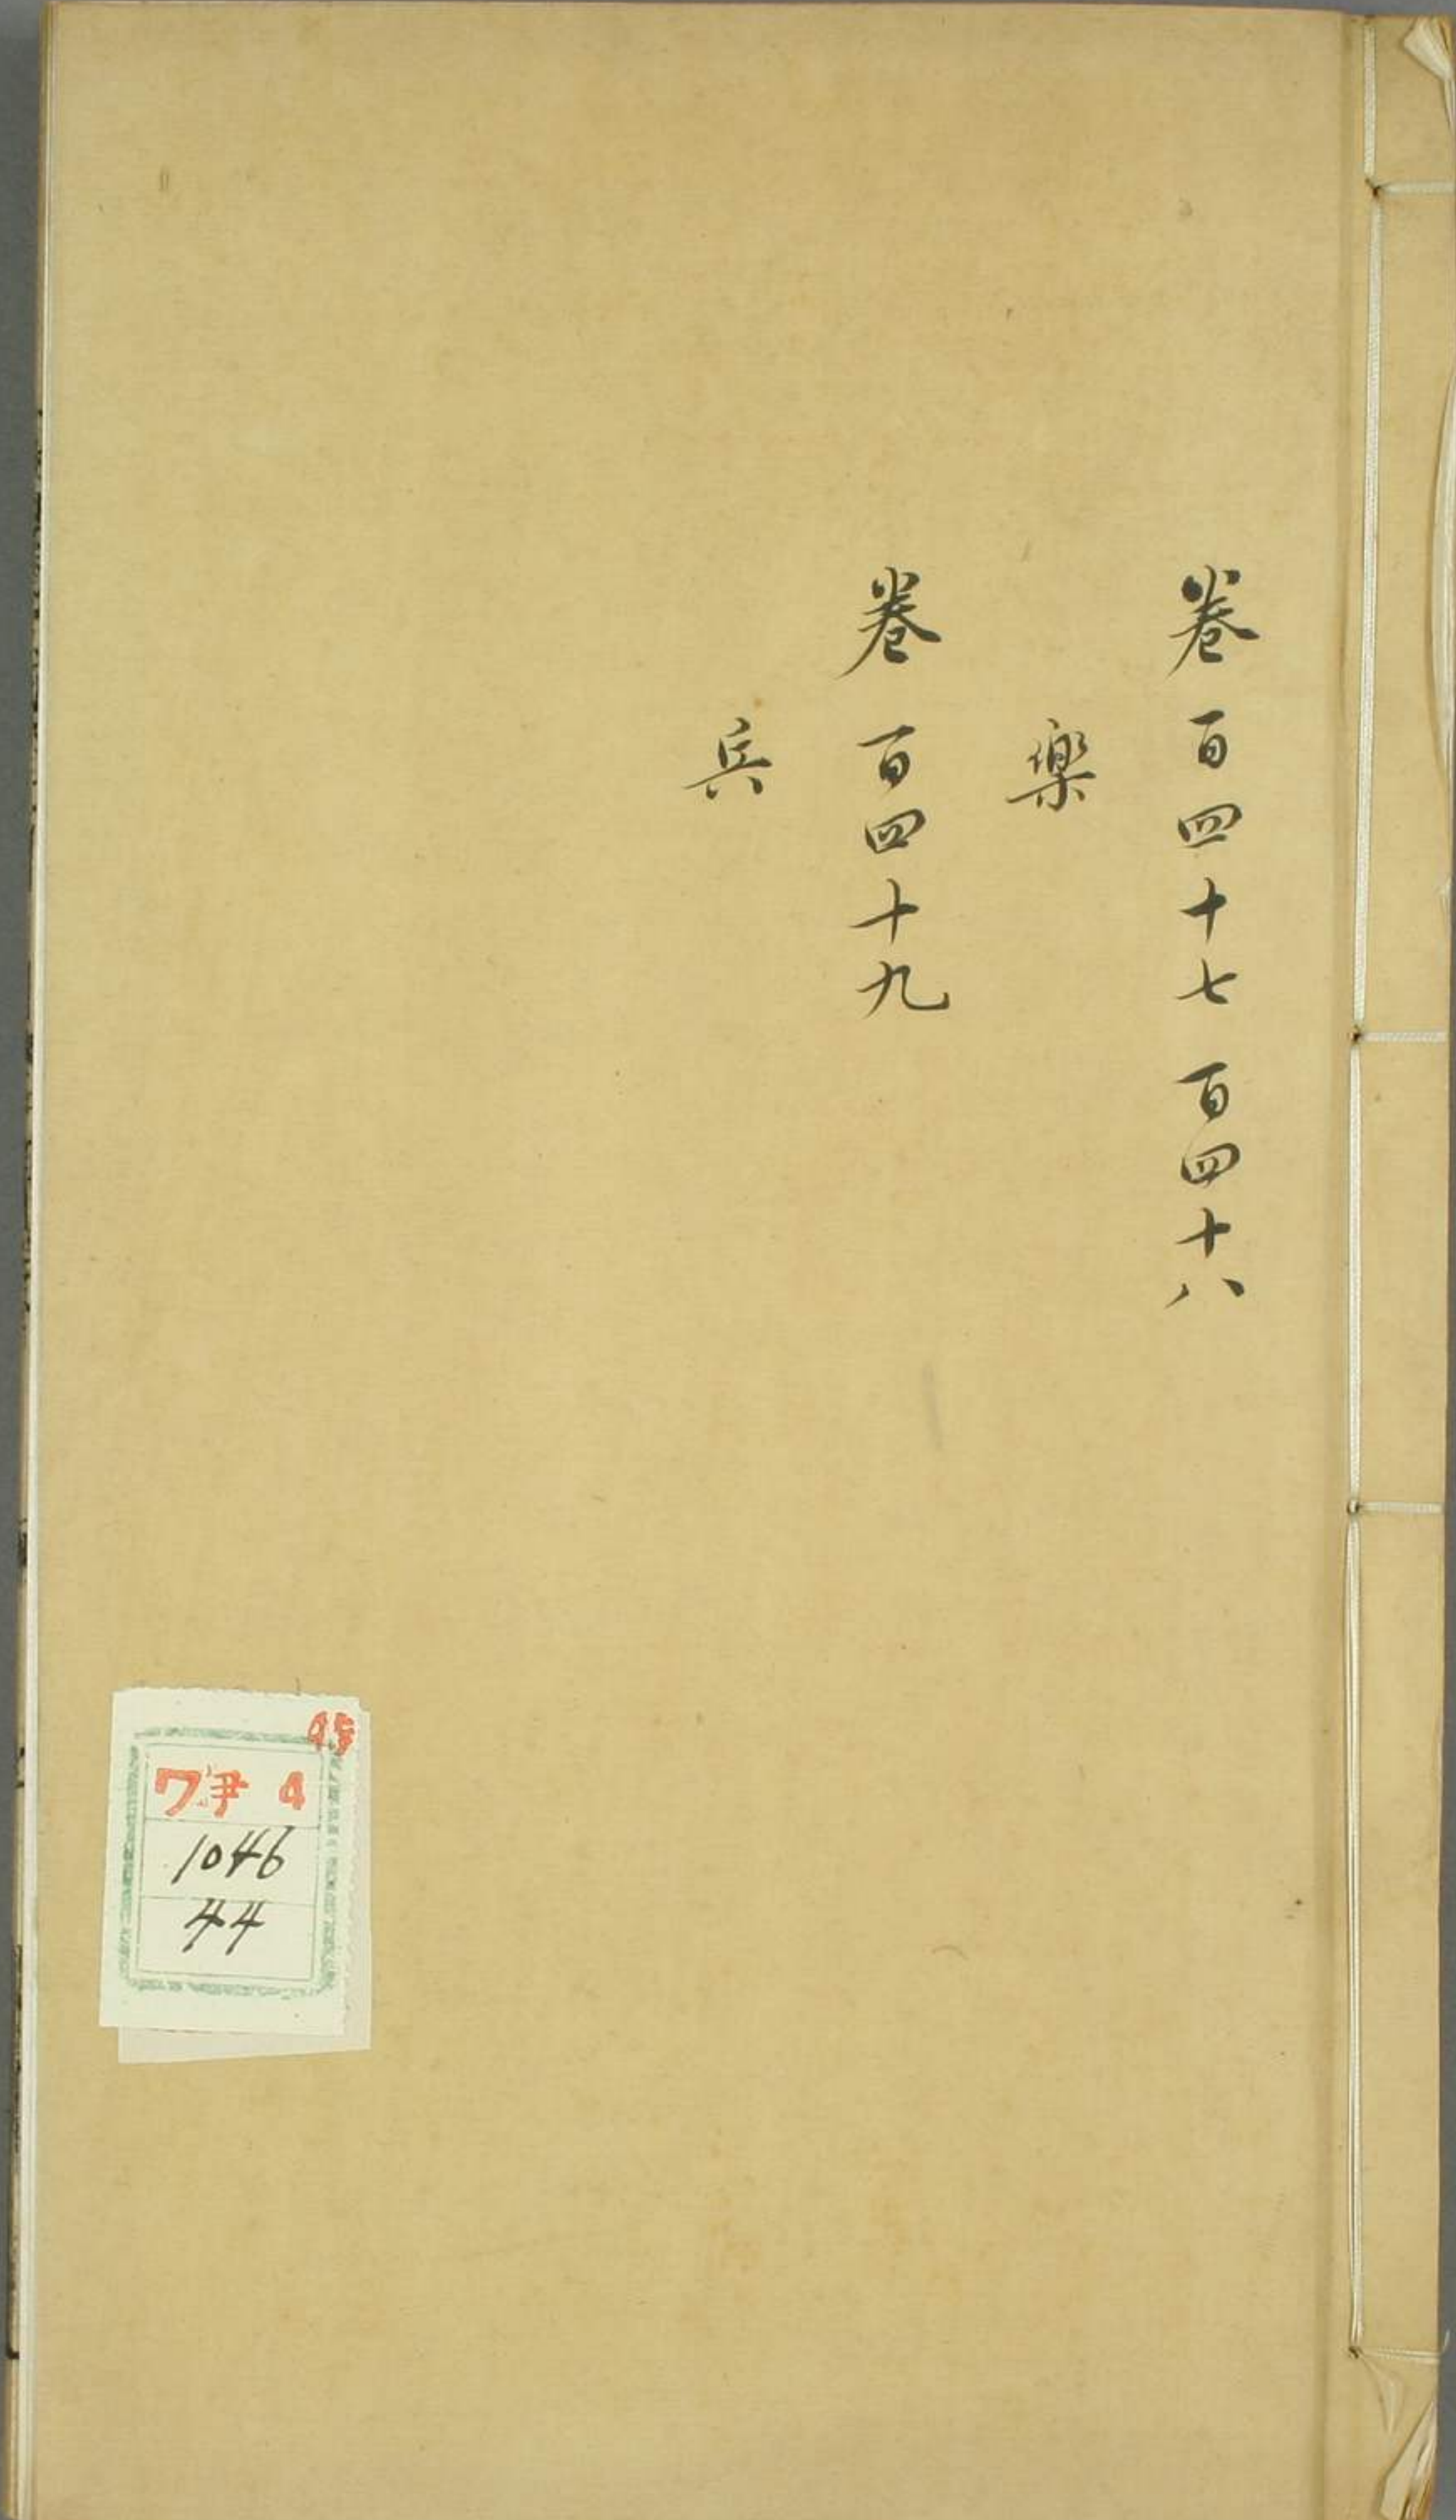 卷百四十七 百四十八
樂
卷百四十九
兵
45
ワ伊 4
1046
44